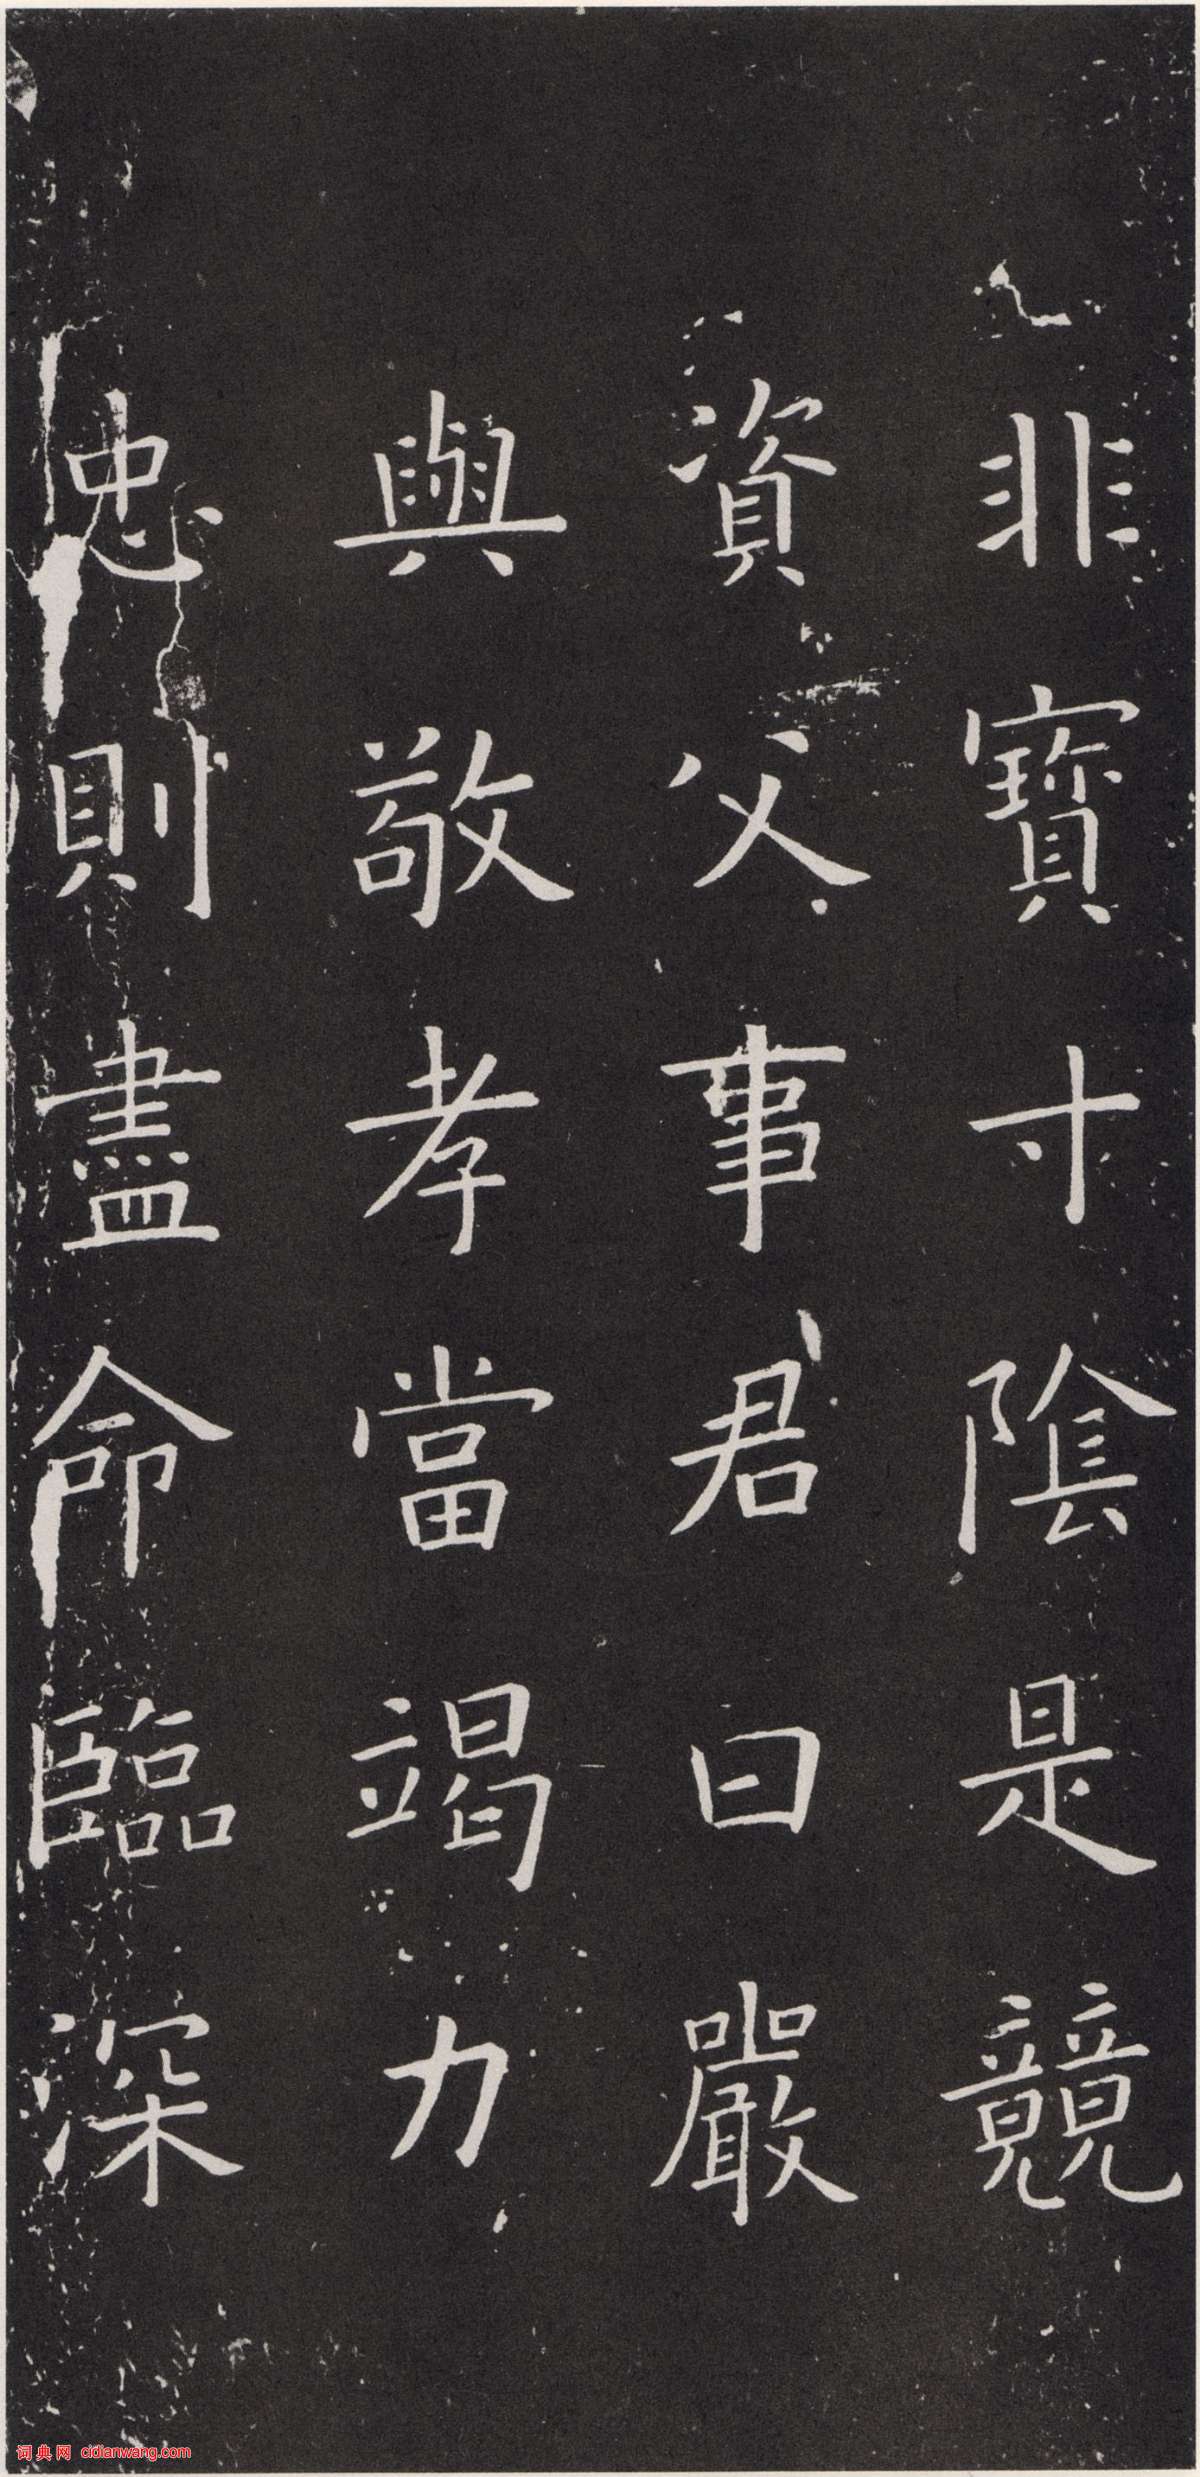 非寶寸陰是競
資父事君曰嚴
與敬孝當竭力
忠則盡命臨深
词典网 cidianwang.com